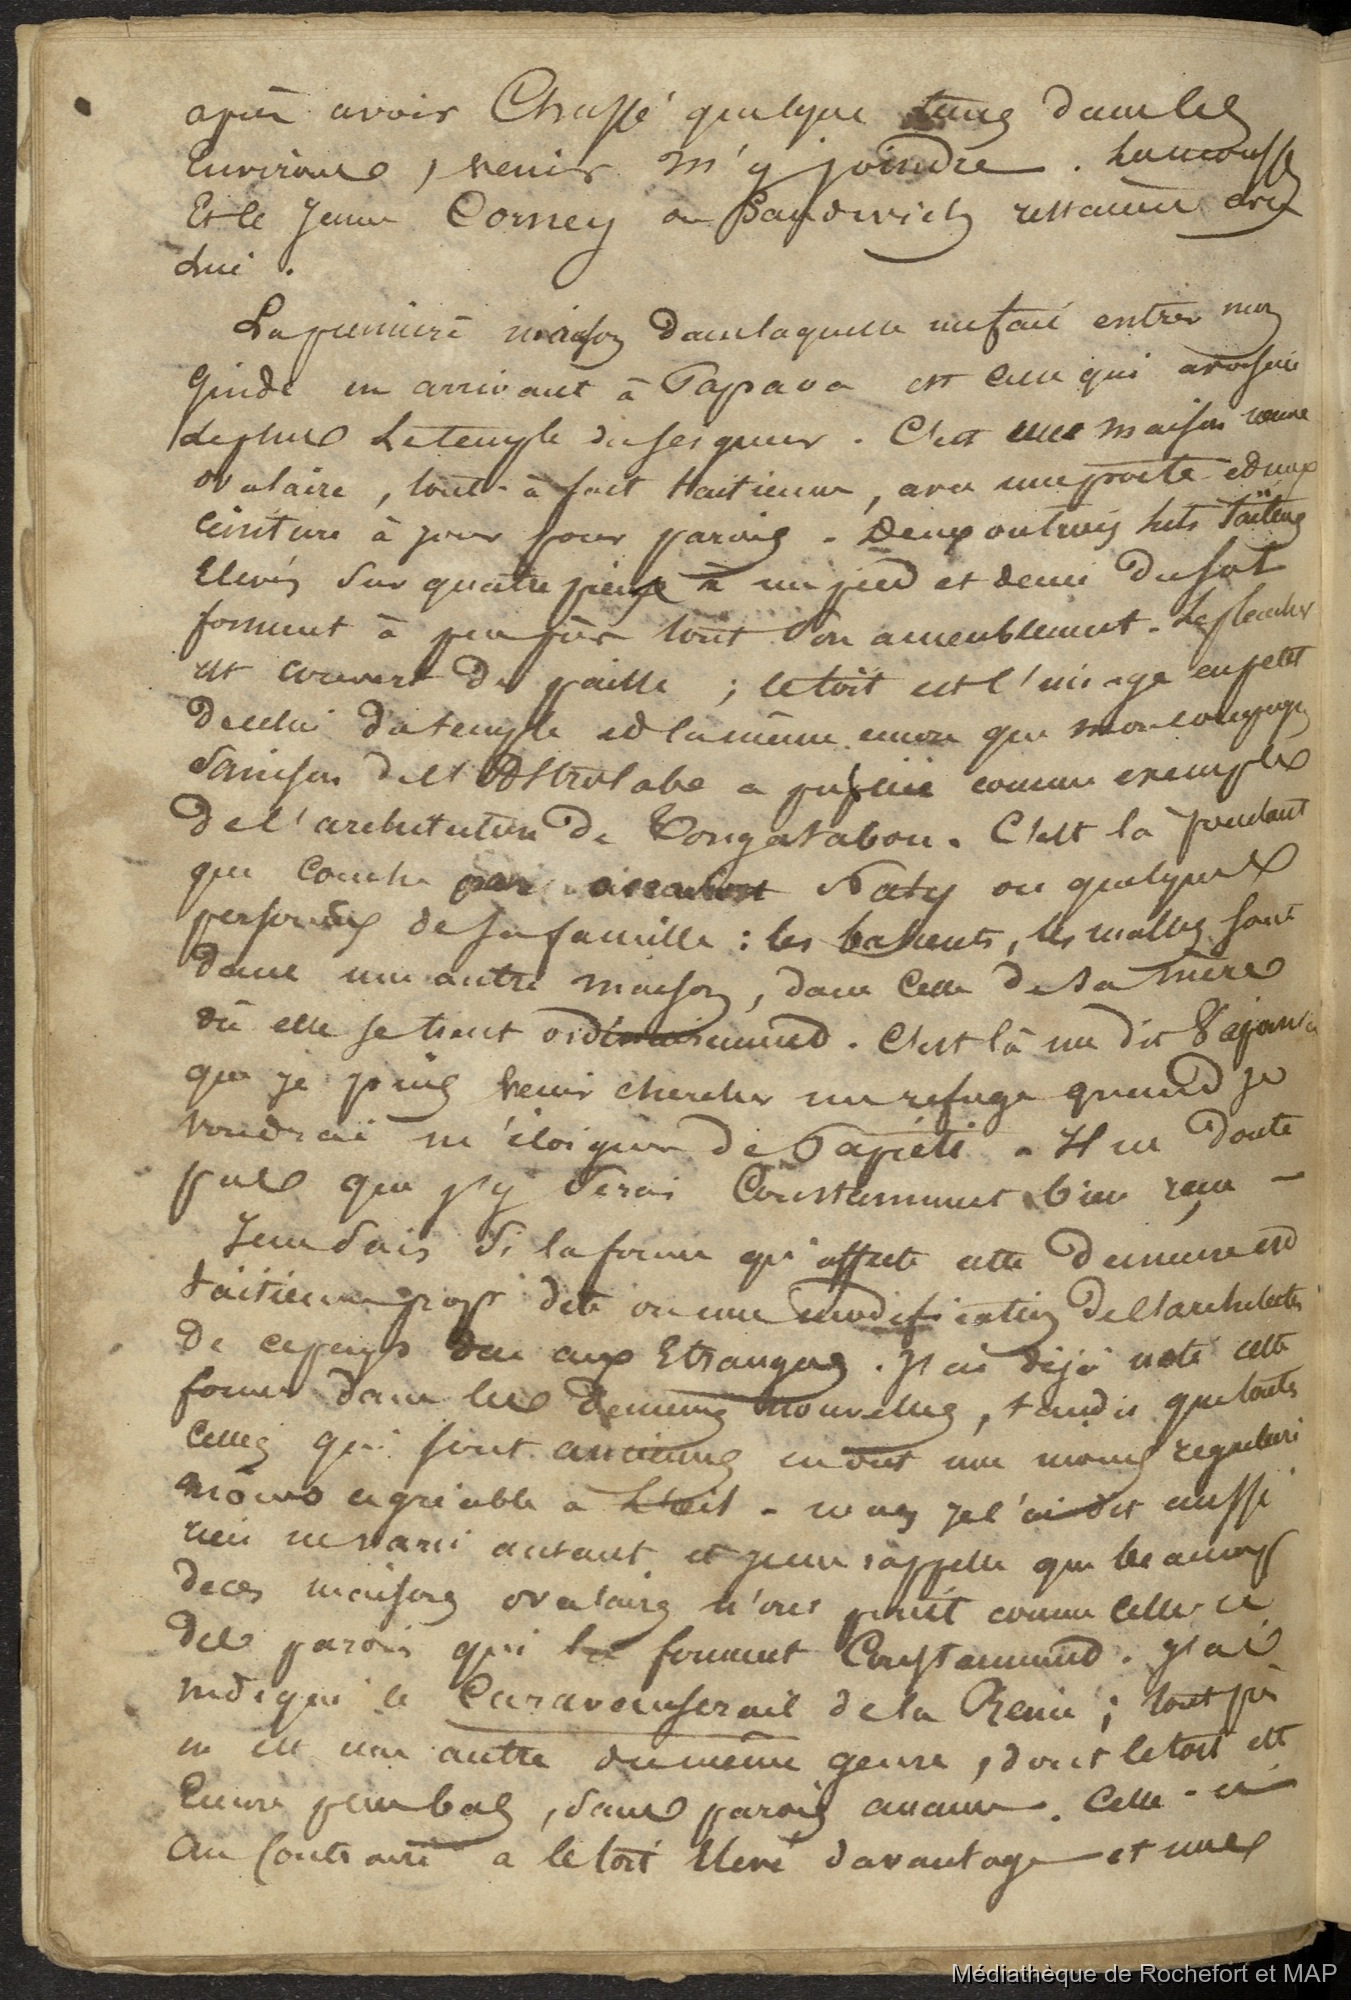 après avoir Chassé quelque tems dans les
Environs, venir m'y joindre. Lamousse
Et le jeune Corney ou Sandwich restaient avec
lui.
La premiere maison dans laquelle me fait entrer mon
guide en arrivant à Papava est celle qui avoisine
le plus le temple du seigneur. C'est une maison
ovalaire, tout-à-fait taitienne, avec une porte et une
ceinture à jour pour parois. Deux ou trois lits Taïtiens
Elevés sur quatre pieux à un pied et demi du sol
forment à peu près tout son ameublement. Le plancher
est couvert de paille ; le toit est l'image en petit
de celui du temple et la même encore que mon compagnon
Sainson de l'Astrolabe a publiée comme exemple
de l'architecture de Tongatabou. C'est là pourtant
que couche Naty ou quelques
personnes de sa famille : les les malles sont
dans une autre maison, dans celle de sa mère
où elle se tient ordinairement. C'est là me dit
que je puis venir chercher un refuge quand je
voudrai m'éloigner de Papiéti. Il ne doute
pas que j'y serai Constamment bien reçu —
Je ne sais si la forme qu'affecte cette demeure est
taitienne prop^t dite ou une modification de l'architecture
de ce pays due aux Etrangers. J'ai déjà noté cette
forme dans les demeures nouvelles, tandis que toutes
celles qui sont anciennes en ont une moins régulière
moins agréable à l'oeil. mais je l'ai dit aussi
rien ne varie autant et je me rappelle que beaucoup
de ces maisons ovalaires n'ont point comme celle-ci
des parois qui les forment Constamment. J'ai
indiqué le Caravanserail de la Reine ; tout près
en est une autre du même genre, dont le toit est
Encore plus bas, sans parois aucune. Celle-ci
Au Contraire a le toit Elevé davantage et une
Médiathèque de Rochefort et MAP